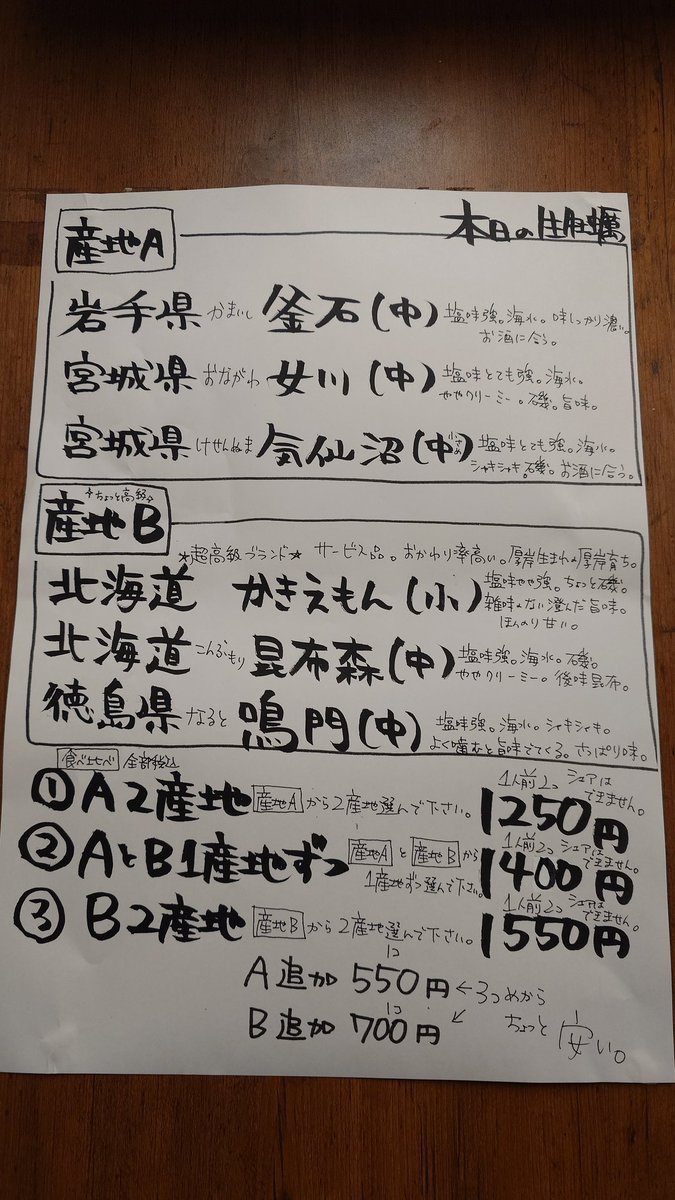 本日の生牡蠣
産地A
岩手県 かまいし 釜石(中) 塩味強。海水。味しっかり濃い。
お酒に合う。
宮城県 おながわ 女川(中) 塩味とても強。海水。
ややクリーミー。磯。旨味。
宮城県 けせんぬま 気仙沼(中小さめ) 塩味とても強。海水。
シャキシャキ。磯。お酒に合う。
ちょっと高級
産地B
★超高級ブランド★ サービス品。おかわり率高い。厚岸生まれ厚岸育ち。
北海道 かきえもん(小) 塩味やや強。ちょっと磯。
雑味のない澄んだ旨味。
ほんのり甘い。
北海道 こんぶもり 昆布森(中) 塩味強。海水。磯。
ややクリーミー。後味昆布。
徳島県 なると 鳴門(中) 塩味強。海水。シャキシャキ。
よく噛むと旨味でてくる。さっぱり味。
食べ比べ 全部税込
① A2産地 産地Aから2産地選んで下さい。 1250円 1人前2コ シェアは
できません。
② AとB1産地ずつ 産地Aと産地Bから 1400円 1人前2コ シェアは
1産地ずつ選んで下さい。 できません。
③ B2産地 産地Bから2産地選んで下さい。 1550円 1人前2コ シェアは
できません。
A追加 1コ 550円 ←3つめから
B追加 1コ 700円 ↙ ちょっと安い。